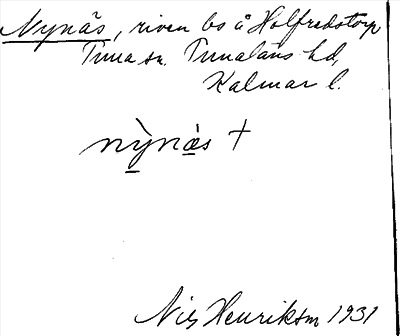 Nynäs, riven bs å Holfredstorp
Tuna sn. Tunaläns hd,
Kalmar l.
nỳnä̀s †
Nils Henriksson 1931